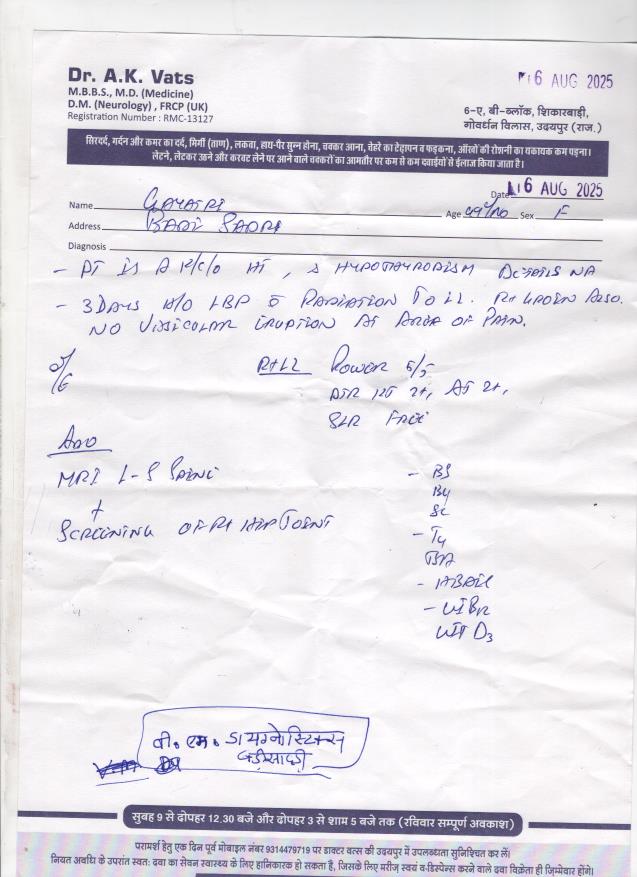 Dr. A.K. Vats
M.B.B.S., M.D. (Medicine)
D.M. (Neurology) , FRCP (UK)
Registration Number : RMC-13127
16 AUG 2025
6-ए, बी-ब्लॉक, शिकारबाड़ी,
गोवर्धन विलास, उदयपुर (राज.)
सिरदर्द, गर्दन और कमर का दर्द, मिर्गी (ताण), लकवा, हाथ-पैर सुन्न होना, चक्कर आना, चेहरे का टेढ़ापन व फड़कना, आँखों की रोशनी का यकायक कम पड़ना।
लेटने, लेटकर उठने और करवट लेने पर आने वाले चक्करों का आमतौर पर कम से कम दवाईयों से ईलाज किया जाता है।
Date 16 AUG 2025
Name GAYATRI Age Sex F
Address BARI SADRI
Diagnosis
- PT IS A K/C/O HT, HYPOTHYRODISM DETAILS NA
- 3 DAYS H/O LBP RADIATION TO LL. RT GROIN ALSO.
NO VISSICULAR ERUPTION AT AREA OF PAIN.
O/E RT LL POWER 5/5
DTR KJ 2+, AJ 2+,
SLR FREE
Adv
MRI L-S SPINE
+
SCREENING OF RT HIP JOINT
- BS
BU
SC
- T4
- HBA1C
- VIT B12
VIT D3
बी. एम. डायग्नोस्टिक्स
बड़ीसादड़ी
सुबह 9 से दोपहर 12.30 बजे और दोपहर 3 से शाम 5 बजे तक (रविवार सम्पूर्ण अवकाश)
परामर्श हेतु एक दिन पूर्व मोबाइल नंबर 9314479719 पर डाक्टर वत्स की उदयपुर में उपलब्धता सुनिश्चित कर लें।
नियत अवधि के उपरांत स्वत: दवा का सेवन स्वास्थ्य के लिए हानिकारक हो सकता है, जिसके लिए मरीज़ स्वयं व-डिस्पेन्स करने वाले दवा विक्रेता ही जिम्मेवार होंगे।